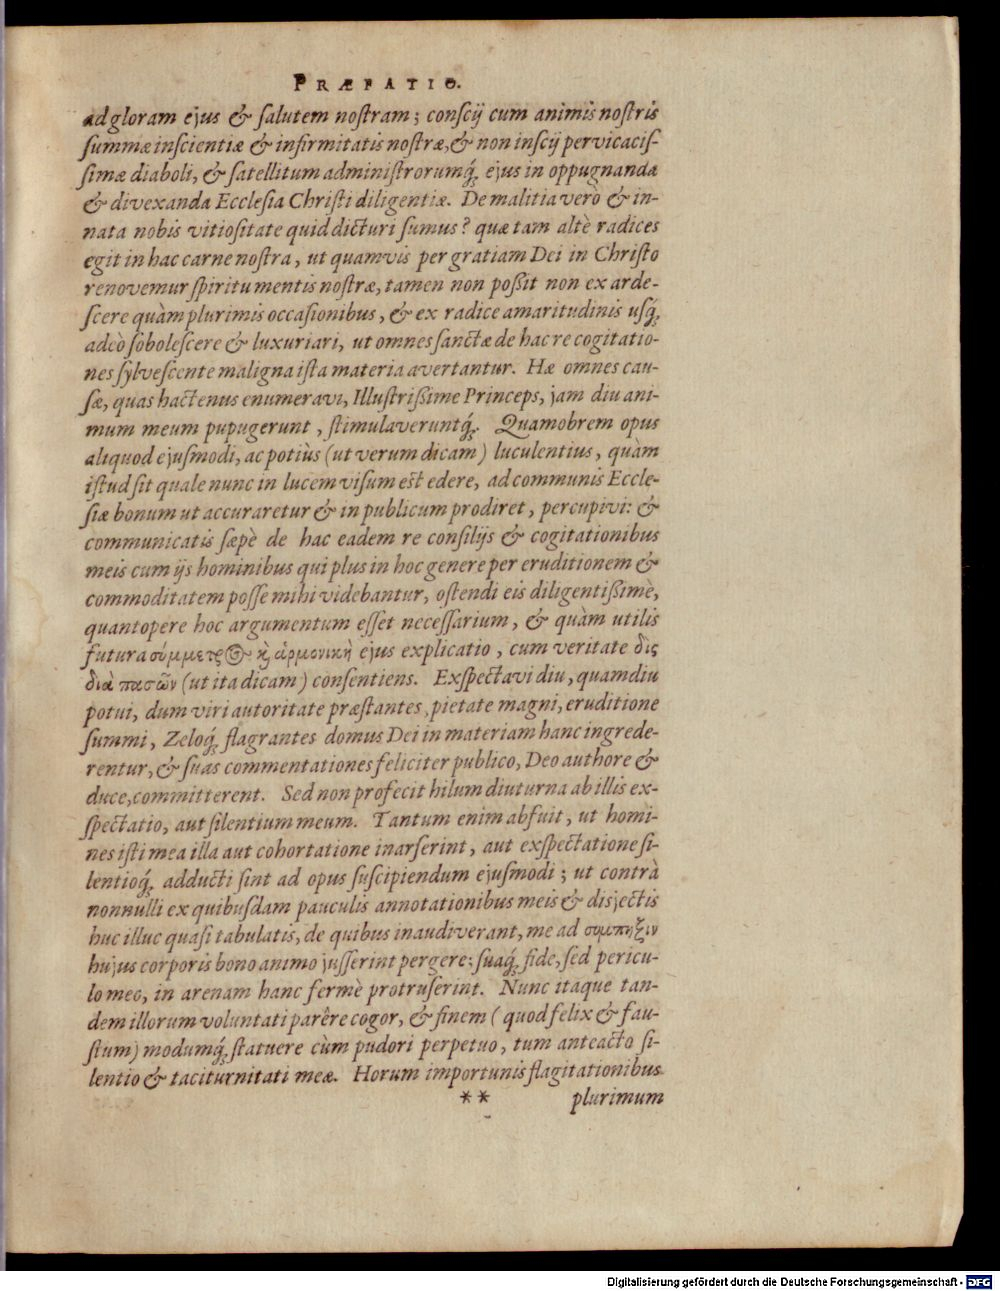 PRÆFATIO.
ad gloram ejus & salutem nostram; conscij cum animis nostris
summæ inscientiæ & infirmitatis nostræ, & non inscij pervicacis-
simæ diaboli, & satellitum administrorumq́; ejus in oppugnanda
& divexanda Ecclesia Christi diligentiæ. De malitia verò & in-
nata nobis vitiositate quid dicturi sumus? quæ tam altè radices
egit in hac carne nostra, ut quamvis per gratiam Dei in Christo
renovemur spiritu mentis nostræ, tamen non poßit non exarde-
scere quàm plurimis occasionibus, & ex radice amaritudinis usq́;
adeò sobolescere & luxuriari, ut omnes sanctæ de hac re cogitatio-
nes sylvescente maligna ista materia avertantur. Hæ omnes cau-
sæ, quas hactenus enumeravi, Illustrißime Princeps, jam diu ani-
mum meum pupugerunt, stimulaveruntq́;. Quamobrem opus
aliquod ejusmodi, ac potiùs (ut verum dicam) luculentius, quàm
istud sit quale nunc in lucem visum est edere, ad communis Eccle-
siæ bonum ut accuraretur & in publicum prodiret, percupivi: &
communicatis sæpè de hac eadem re consilijs & cogitationibus
meis cum ijs hominibus qui plus in hoc genere per eruditionem &
commoditatem posse mihi videbantur, ostendi eis diligentißimè,
quantopere hoc argumentum esset necessarium, & quàm utilis
futura σύμμετρ@ ϗ ἁρμονικὴ ejus explicatio, cum veritate δὶς
διὰ πασῶν (ut ita dicam) consentiens. Exspectavi diu, quamdiu
potui, dum viri autoritate præstantes, pietate magni, eruditione
summi, Zeloq́; flagrantes domus Dei in materiam hanc ingrede-
rentur, & suas commentationes feliciter publico, Deo authore &
duce, committerent. Sed non profecit hilum diuturna ab illis ex-
spectatio, aut silentium meum. Tantum enim abfuit, ut homi-
nes isti mea illa aut cohortatione inarserint, aut exspectatione si-
lentioq́; adducti sint ad opus suscipiendum ejusmodi; ut contrà
nonnulli ex quibusdam pauculis annotationibus meis & disjectis
huc illuc quasi tabulatis, de quibus inaudiverant, me ad σύμπηξιν
hujus corporis bono animo jusserint pergere: suaq́; fide, sed pericu-
lo meo, in arenam hanc fermè protruserint. Nunc itaque tan-
dem illorum voluntati parêre cogor, & finem (quod felix & fau-
stum) modumq́; statuere cùm pudori perpetuo, tum anteacto si-
lentio & taciturnitati meæ. Horum importunis flagitationibus
** plurimum
Digitalisierung gefördert durch die Deutsche Forschungsgemeinschaft - DFG